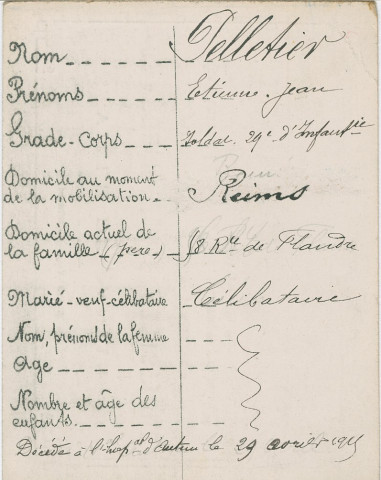 Nom Pelletier
Prénoms Etienne-Jean
Grade-Corps Soldat 29e d'Infantie
Domicile au moment
de la mobilisation Reims
Domicile actuel de
la famille (père) 18 R te de Flandre
Marié-veuf-célibataire Célibataire
Nom, prénoms de la femme
Age
Nombre et âge des
enfants
Décédé à l'hopal d'Autun le 29 avril 1915